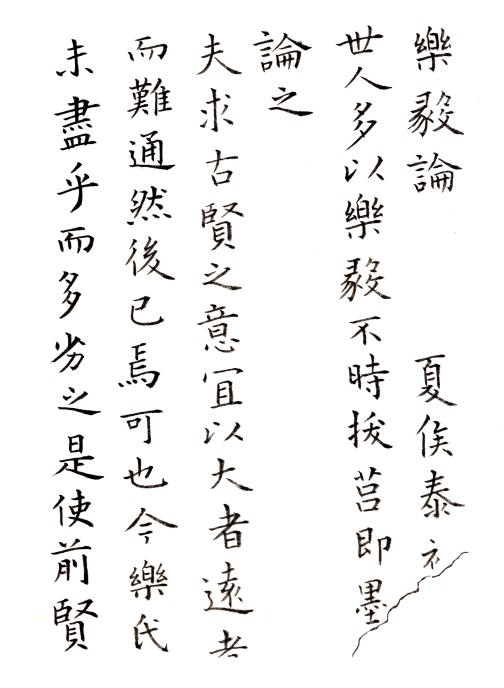 樂毅論 夏侯泰
世人多以樂毅不時拔莒即墨
論之
夫求古賢之意宜以大者遠者
而難通然後已焉可也今樂氏
未盡乎而多劣之是使前賢